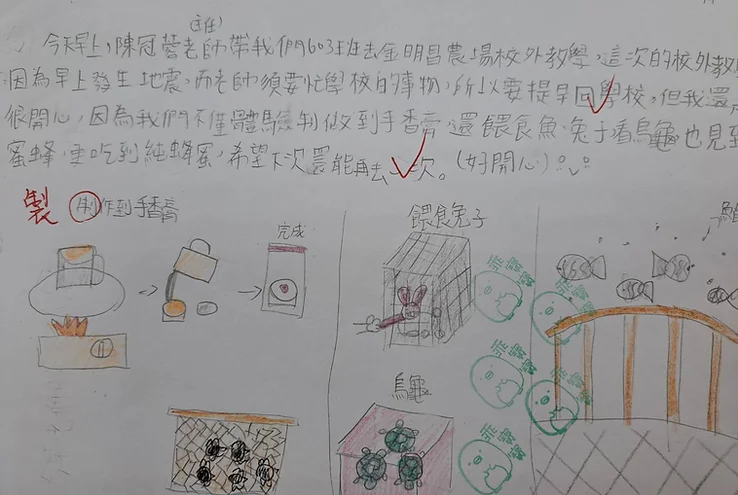 (主任)
今天早上,陳冠蓉老師帶我們603班去金明昌農場校外教學,這次的校外教
因為早上發生地震,而老師須要忙學校的事物,所以要提早回學校,但我還
很開心,因為我們不僅體驗制做到手香膏,還餵食魚、兔子看烏龜也見到
蜜蜂,並吃到純蜂蜜,希望下次還能再去一次。(好開心)
製 制作到手香膏
完成
餵食兔子
烏龜
乖寶寶
乖寶寶
乖寶寶
乖寶寶
乖寶寶